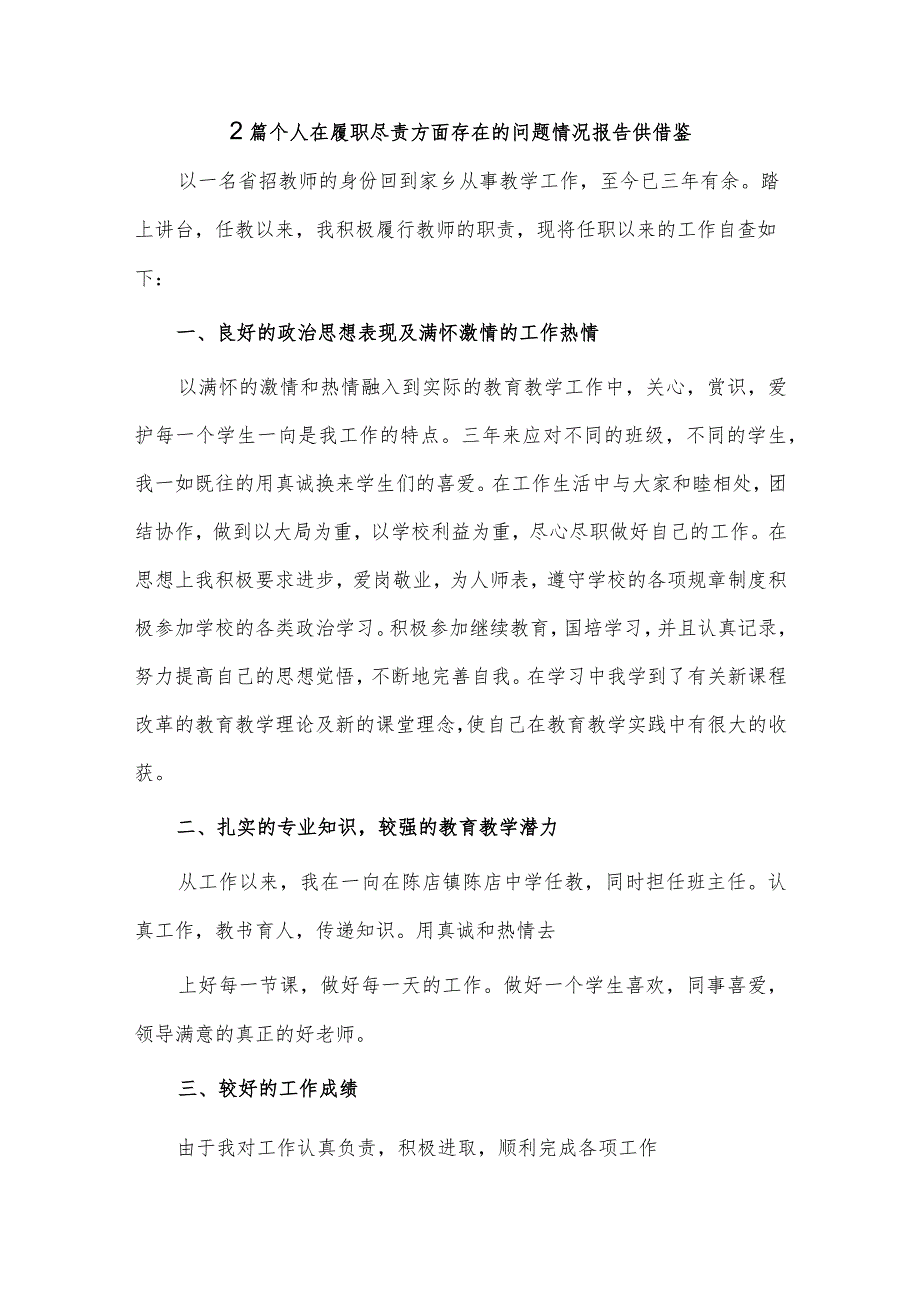 2篇个人在履职尽责方面存在的问题情况报告供借鉴
以一名省招教师的身份回到家乡从事教学工作，至今已三年有余。踏
上讲台，任教以来，我积极履行教师的职责，现将任职以来的工作自查如
下：
一、良好的政治思想表现及满怀激情的工作热情
以满怀的激情和热情融入到实际的教育教学工作中，关心，赏识，爱
护每一个学生一向是我工作的特点。三年来应对不同的班级，不同的学生，
我一如既往的用真诚换来学生们的喜爱。在工作生活中与大家和睦相处，团
结协作，做到以大局为重，以学校利益为重，尽心尽职做好自己的工作。在
思想上我积极要求进步，爱岗敬业，为人师表，遵守学校的各项规章制度积
极参加学校的各类政治学习。积极参加继续教育，国培学习，并且认真记录，
努力提高自己的思想觉悟，不断地完善自我。在学习中我学到了有关新课程
改革的教育教学理论及新的课堂理念，使自己在教育教学实践中有很大的收
获。
二、扎实的专业知识，较强的教育教学潜力
从工作以来，我在一向在陈店镇陈店中学任教，同时担任班主任。认
真工作，教书育人，传递知识。用真诚和热情去
上好每一节课，做好每一天的工作。做好一个学生喜欢，同事喜爱，
领导满意的真正的好老师。
三、较好的工作成绩
由于我对工作认真负责，积极进取，顺利完成各项工作